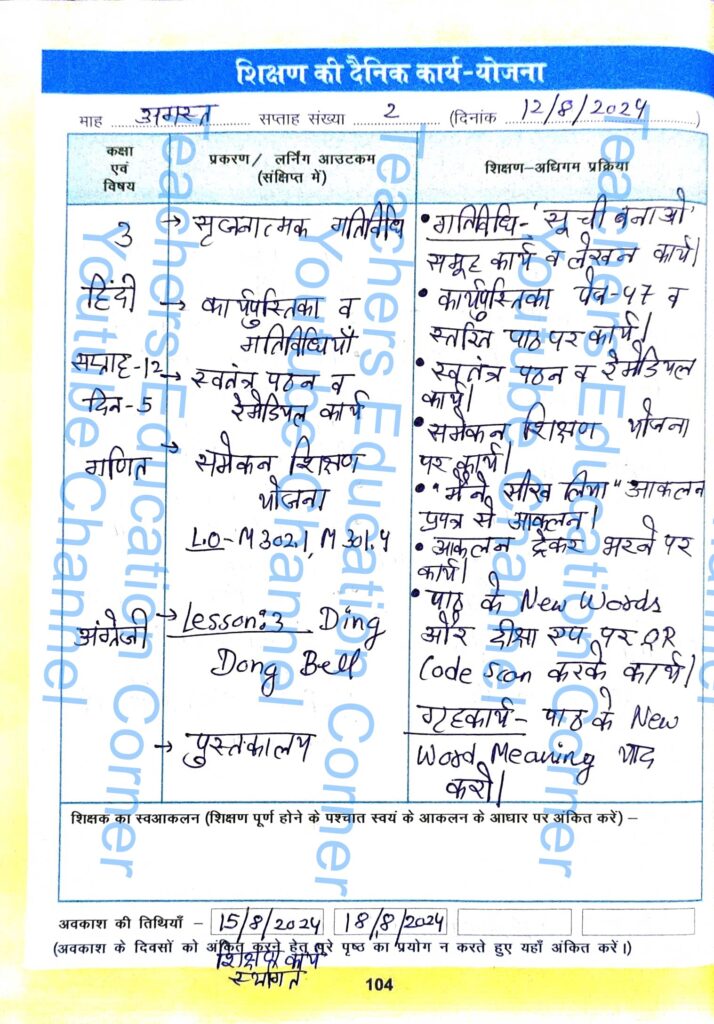 शिक्षण की दैनिक कार्य-योजना
माह अगस्त सप्ताह संख्या 2 (दिनांक 12/8/2024)
कक्षा
एवं
विषय
प्रकरण/ लर्निंग आउटकम
(संक्षिप्त में)
शिक्षण-अधिगम प्रक्रिया
3
हिंदी
सप्ताह-12
दिन-5
गणित
अंग्रेजी
→ सृजनात्मक गतिविधि
→ कार्यपुस्तिका व
गतिविधियाँ
→ स्वतंत्र पठन व
रेमेडियल कार्य
→ समेकन शिक्षण
योजना
L.O-M302.1, M301.4
→ Lesson:3 Ding
Dong Bell
→ पुस्तकालय
• गतिविधि-'सूची बनाओ'
समूह कार्य व लेखन कार्य।
• कार्यपुस्तिका पेज-47 व
स्तरित पाठ पर कार्य।
• स्वतंत्र पठन व रेमेडियल
कार्य।
• समेकन शिक्षण योजना
पर कार्य।
• "मैंने सीख लिया" आकलन
प्रपत्र से आकलन।
• आकलन ट्रेकर भरने पर
कार्य।
• पाठ के New Words
और दीक्षा एप पर QR
Code Scan करके कार्य।
गृहकार्य- पाठ के New
Word Meaning याद
करो।
शिक्षक का स्वआकलन (शिक्षण पूर्ण होने के पश्चात स्वयं के आकलन के आधार पर अंकित करें) –
अवकाश की तिथियाँ – 15/8/2024 18/8/2024
(अवकाश के दिवसों को अंकित करने हेतु पूरे पृष्ठ का प्रयोग न करते हुए यहाँ अंकित करें।)
शिक्षण कार्य
स्थगित
104
Teachers Education Corner
Youtube Channel
Teachers Education Corner
Youtube Channel
Teachers Education Corner
Youtube Channel